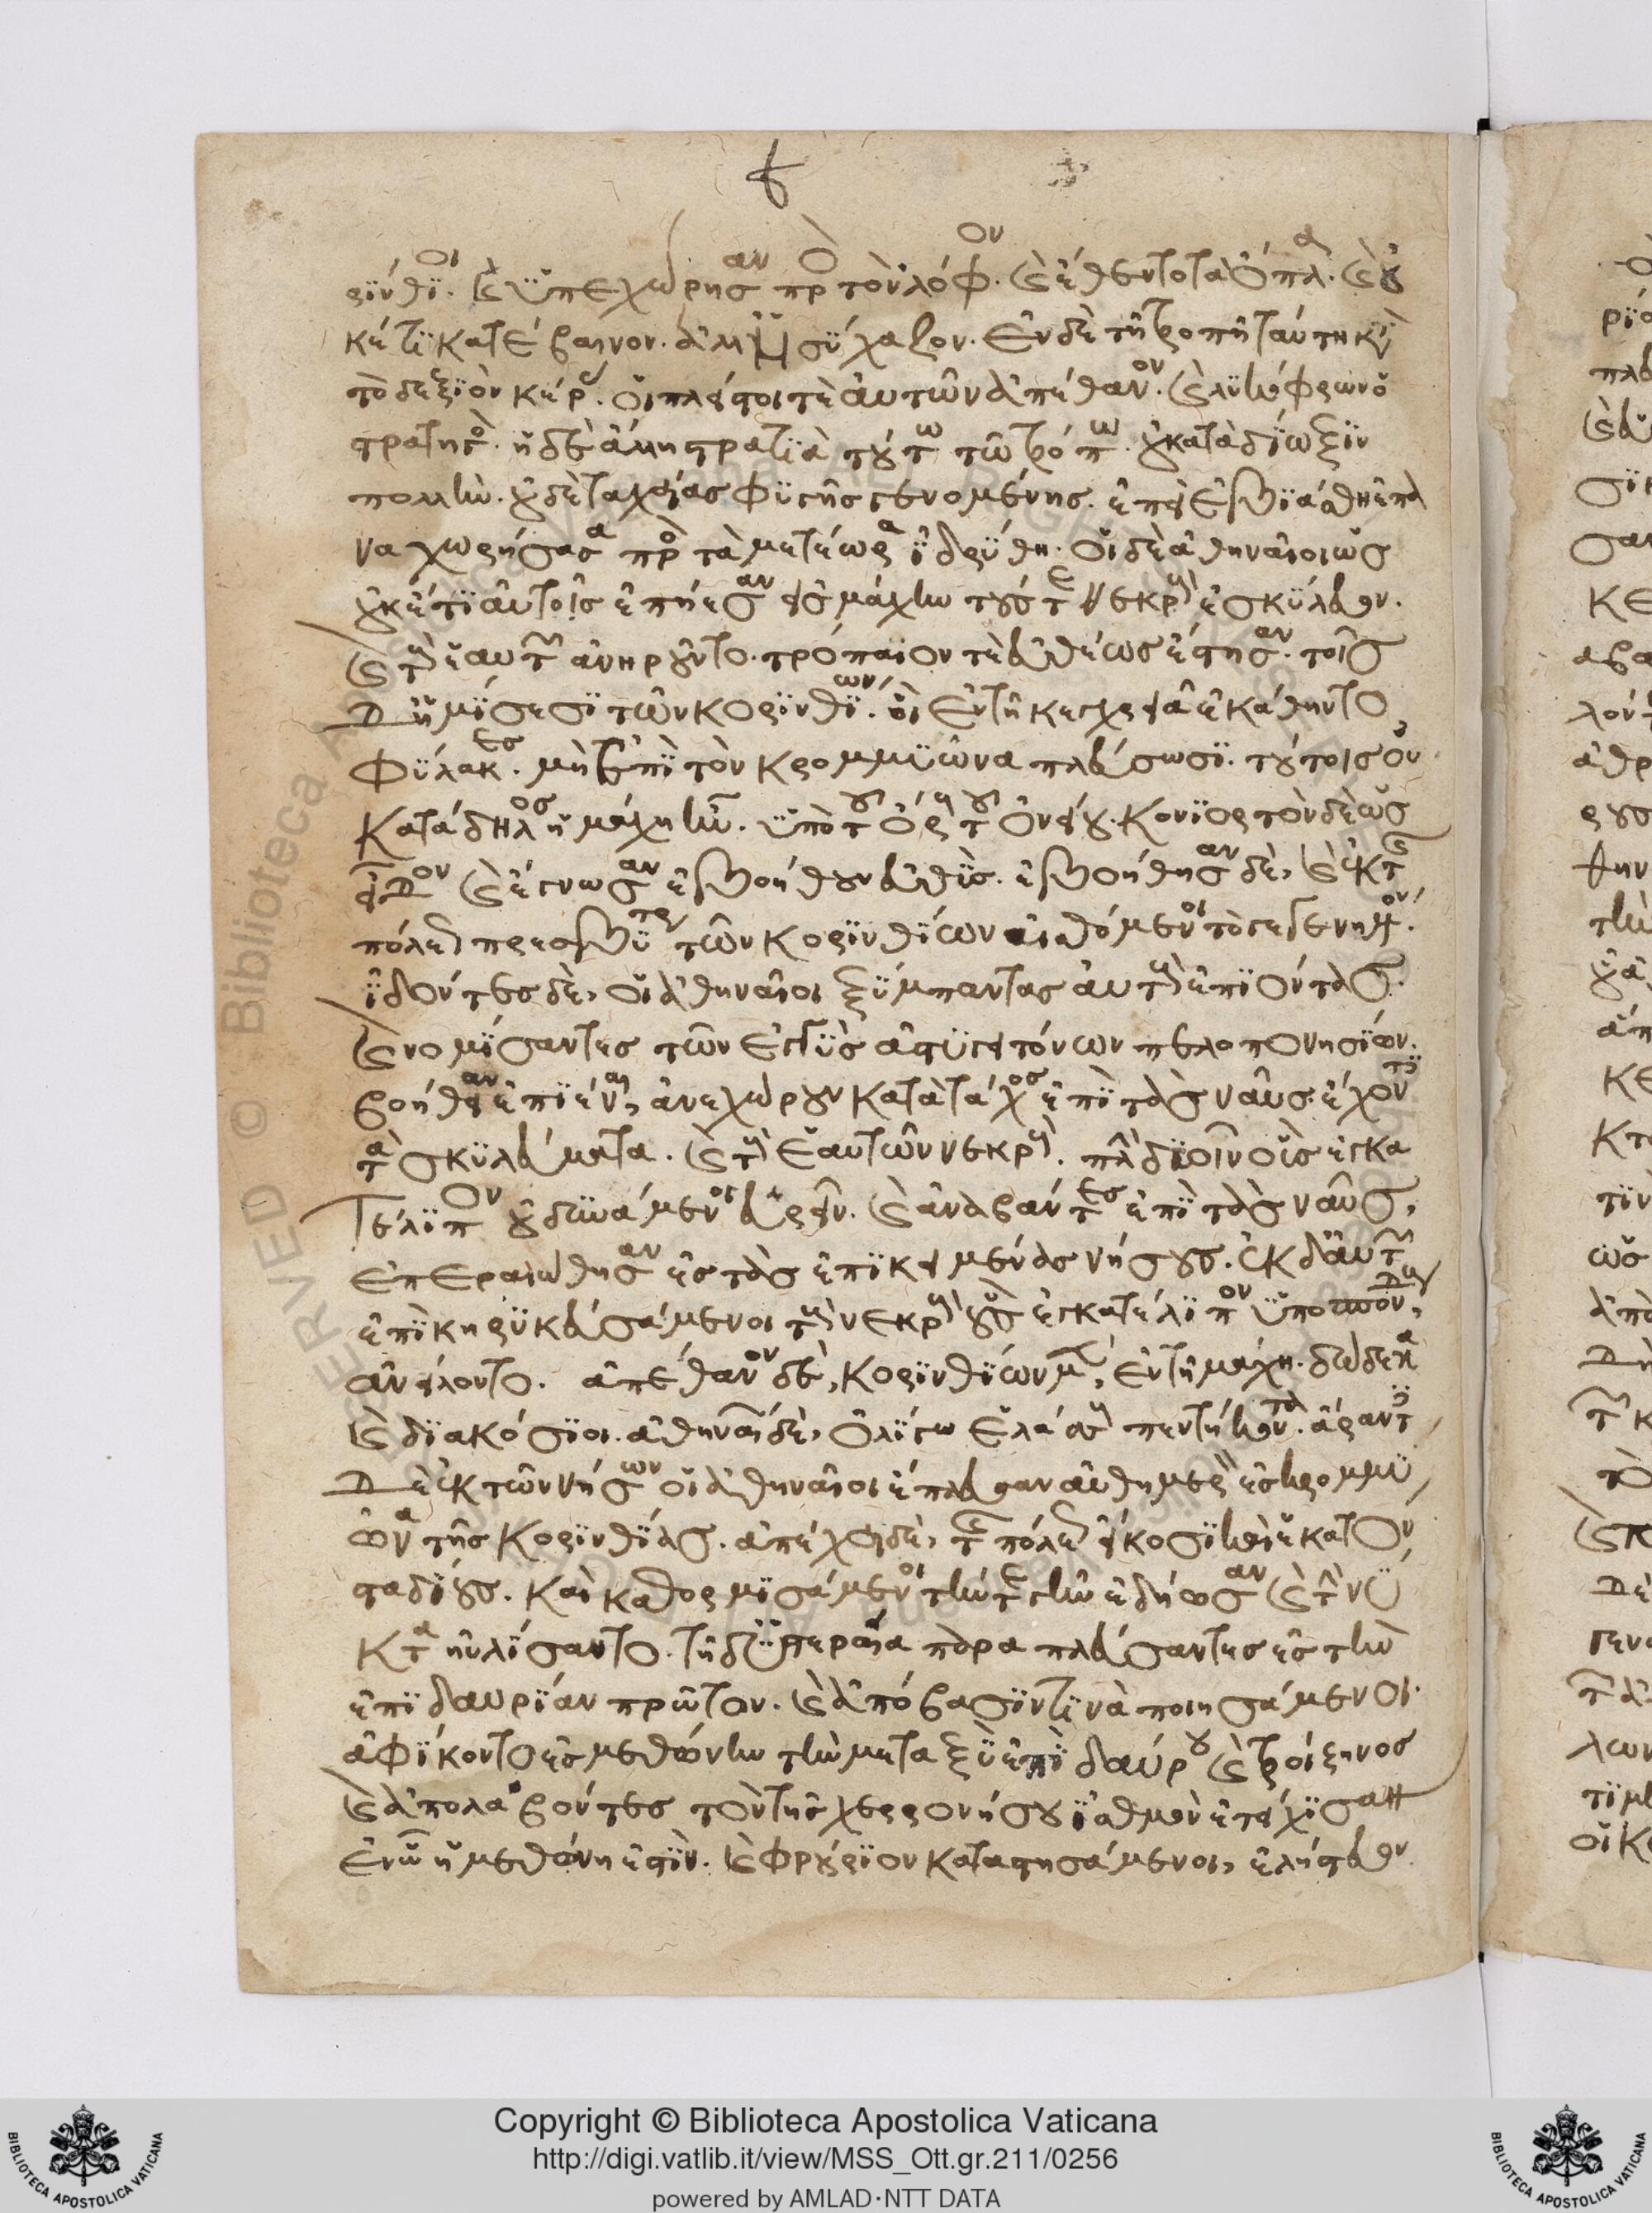 ρίνθιοι. καὶ ὑπεχώρησαν πρὸς τὸν λόφον. καὶ ἔθεντο τὰ ὅπλα. καὶ οὐ
κέτι κατέβαινον. ἀλλ' ἡσύχαζον. ἐν δὲ τῇ τροπῇ ταύτῃ κατὰ
τὸ δεξιὸν κέρας. οἱ πλεῖστοι τὲ αὐτῶν ἀπέθανον. καὶ λυκόφρων ὁ
στρατηγός. ἡ δὲ ἄλλη στρατιὰ τούτω τῶ τρόπω. οὐ κατὰ δίωξιν
πολλὴν. οὐδὲ ταχείας φυγῆς γενομένης. ἐπεὶ ἐβιάσθη ἐπα
ναχωρήσασα πρὸς τὰ μετέωρα ἱδρύθη. οἱ δὲ ἀθηναῖοι ὡς
οὐκέτι αὐτοῖς ἐπήεσαν ἐς μάχην τούς τε νεκροὺς ἐσκύλευον.
καὶ τοὺς ἑαυτῶν ἀνηροῦντο. τρόπαιον τὲ εὐθέως ἔστησαν. τοῖς
δὲ ἡμίσεσι τῶν κορινθίων. οἳ ἐν τῇ κεγχρειᾶ ἐκάθηντο
φύλακες. μὴ ἐπὶ τὸν κρομμυῶνα πλεύσωσι. τούτοις οὐ
κατάδηλος ἡ μάχη ἦν. ὑπὸ τοῦ ὄρους τοῦ ὀνείου. κονιορτὸν δὲ ὡς
εἶδον καὶ ἔγνωσαν ἐβοήθουν εὐθὺς. ἐβοήθησαν δὲ, καὶ ἐκ τῆς
πόλεως πρεσβύτεροι τῶν κορινθίων αἰσθόμενοι τὸ γεγενημένον.
ἰδόντες δὲ, οἱ ἀθηναῖοι ξύμπαντας αὐτοὺς ἐπιόντας.
καὶ νομίσαντες τῶν ἐγγὺς ἀστυγειτόνων πελοποννησίων.
βοήθειαν ἐπιέναι, ἀνεχώρουν κατὰ τάχος ἐπὶ τὰς ναῦς. ἔχοντες
τὰ σκυλεύματα. καὶ τοὺς ἑαυτῶν νεκροὺς. πλὴν δυοῖν οὓς ἐγκα
τέλιπον οὐ δυνάμενοι εὑρεῖν. καὶ ἀναβάντες ἐπὶ τὰς ναῦς,
ἐπεραιώθησαν ἐς τὰς ἐπικειμένας νήσους. ἐκ δ' αὐτῶν
ἐπικηρυκευσάμενοι τοὺς νεκροὺς οὓς ἐγκατέλιπον ὑποσπόνδους,
ἀνείλοντο. ἀπέθανον δὲ, κορινθίων μὲν, ἐν τῇ μάχη. δώδεκα
καὶ διακόσιοι. ἀθηναίων δὲ, ὀλίγω ἐλάσσους πεντήκοντα. ἄραντες
δὲ ἐκ τῶν νήσων οἱ ἀθηναῖοι ἔπλευσαν αὐθημερὸν ἐς κρομμυ
ῶνα τῆς κορινθίας. ἀπέχει δὲ, τῆς πόλεως εἴκοσι καὶ ἑκατὸν
σταδίους. καὶ καθορμισάμενοι τήν τε γῆν ἐδήωσαν καὶ τὴν νύ
κτα ηὐλίσαντο. τῇ δ' ὑστεραία παραπλεύσαντες ἐς τὴν
ἐπιδαυρίαν πρῶτον. καὶ ἀπόβασίν τινὰ ποιησάμενοι.
ἀφίκοντο ἐς μεθώνην τὴν μεταξὺ ἐπιδαύρου καὶ τροιζηνος
καὶ ἀπολαβόντες τὸν τῆς χερσονήσου ἰσθμὸν ἐτείχισαν
ἐν ᾧ ἡ μεθώνη ἐστὶν. καὶ φρούριον καταστησάμενοι, ἐλήστευον